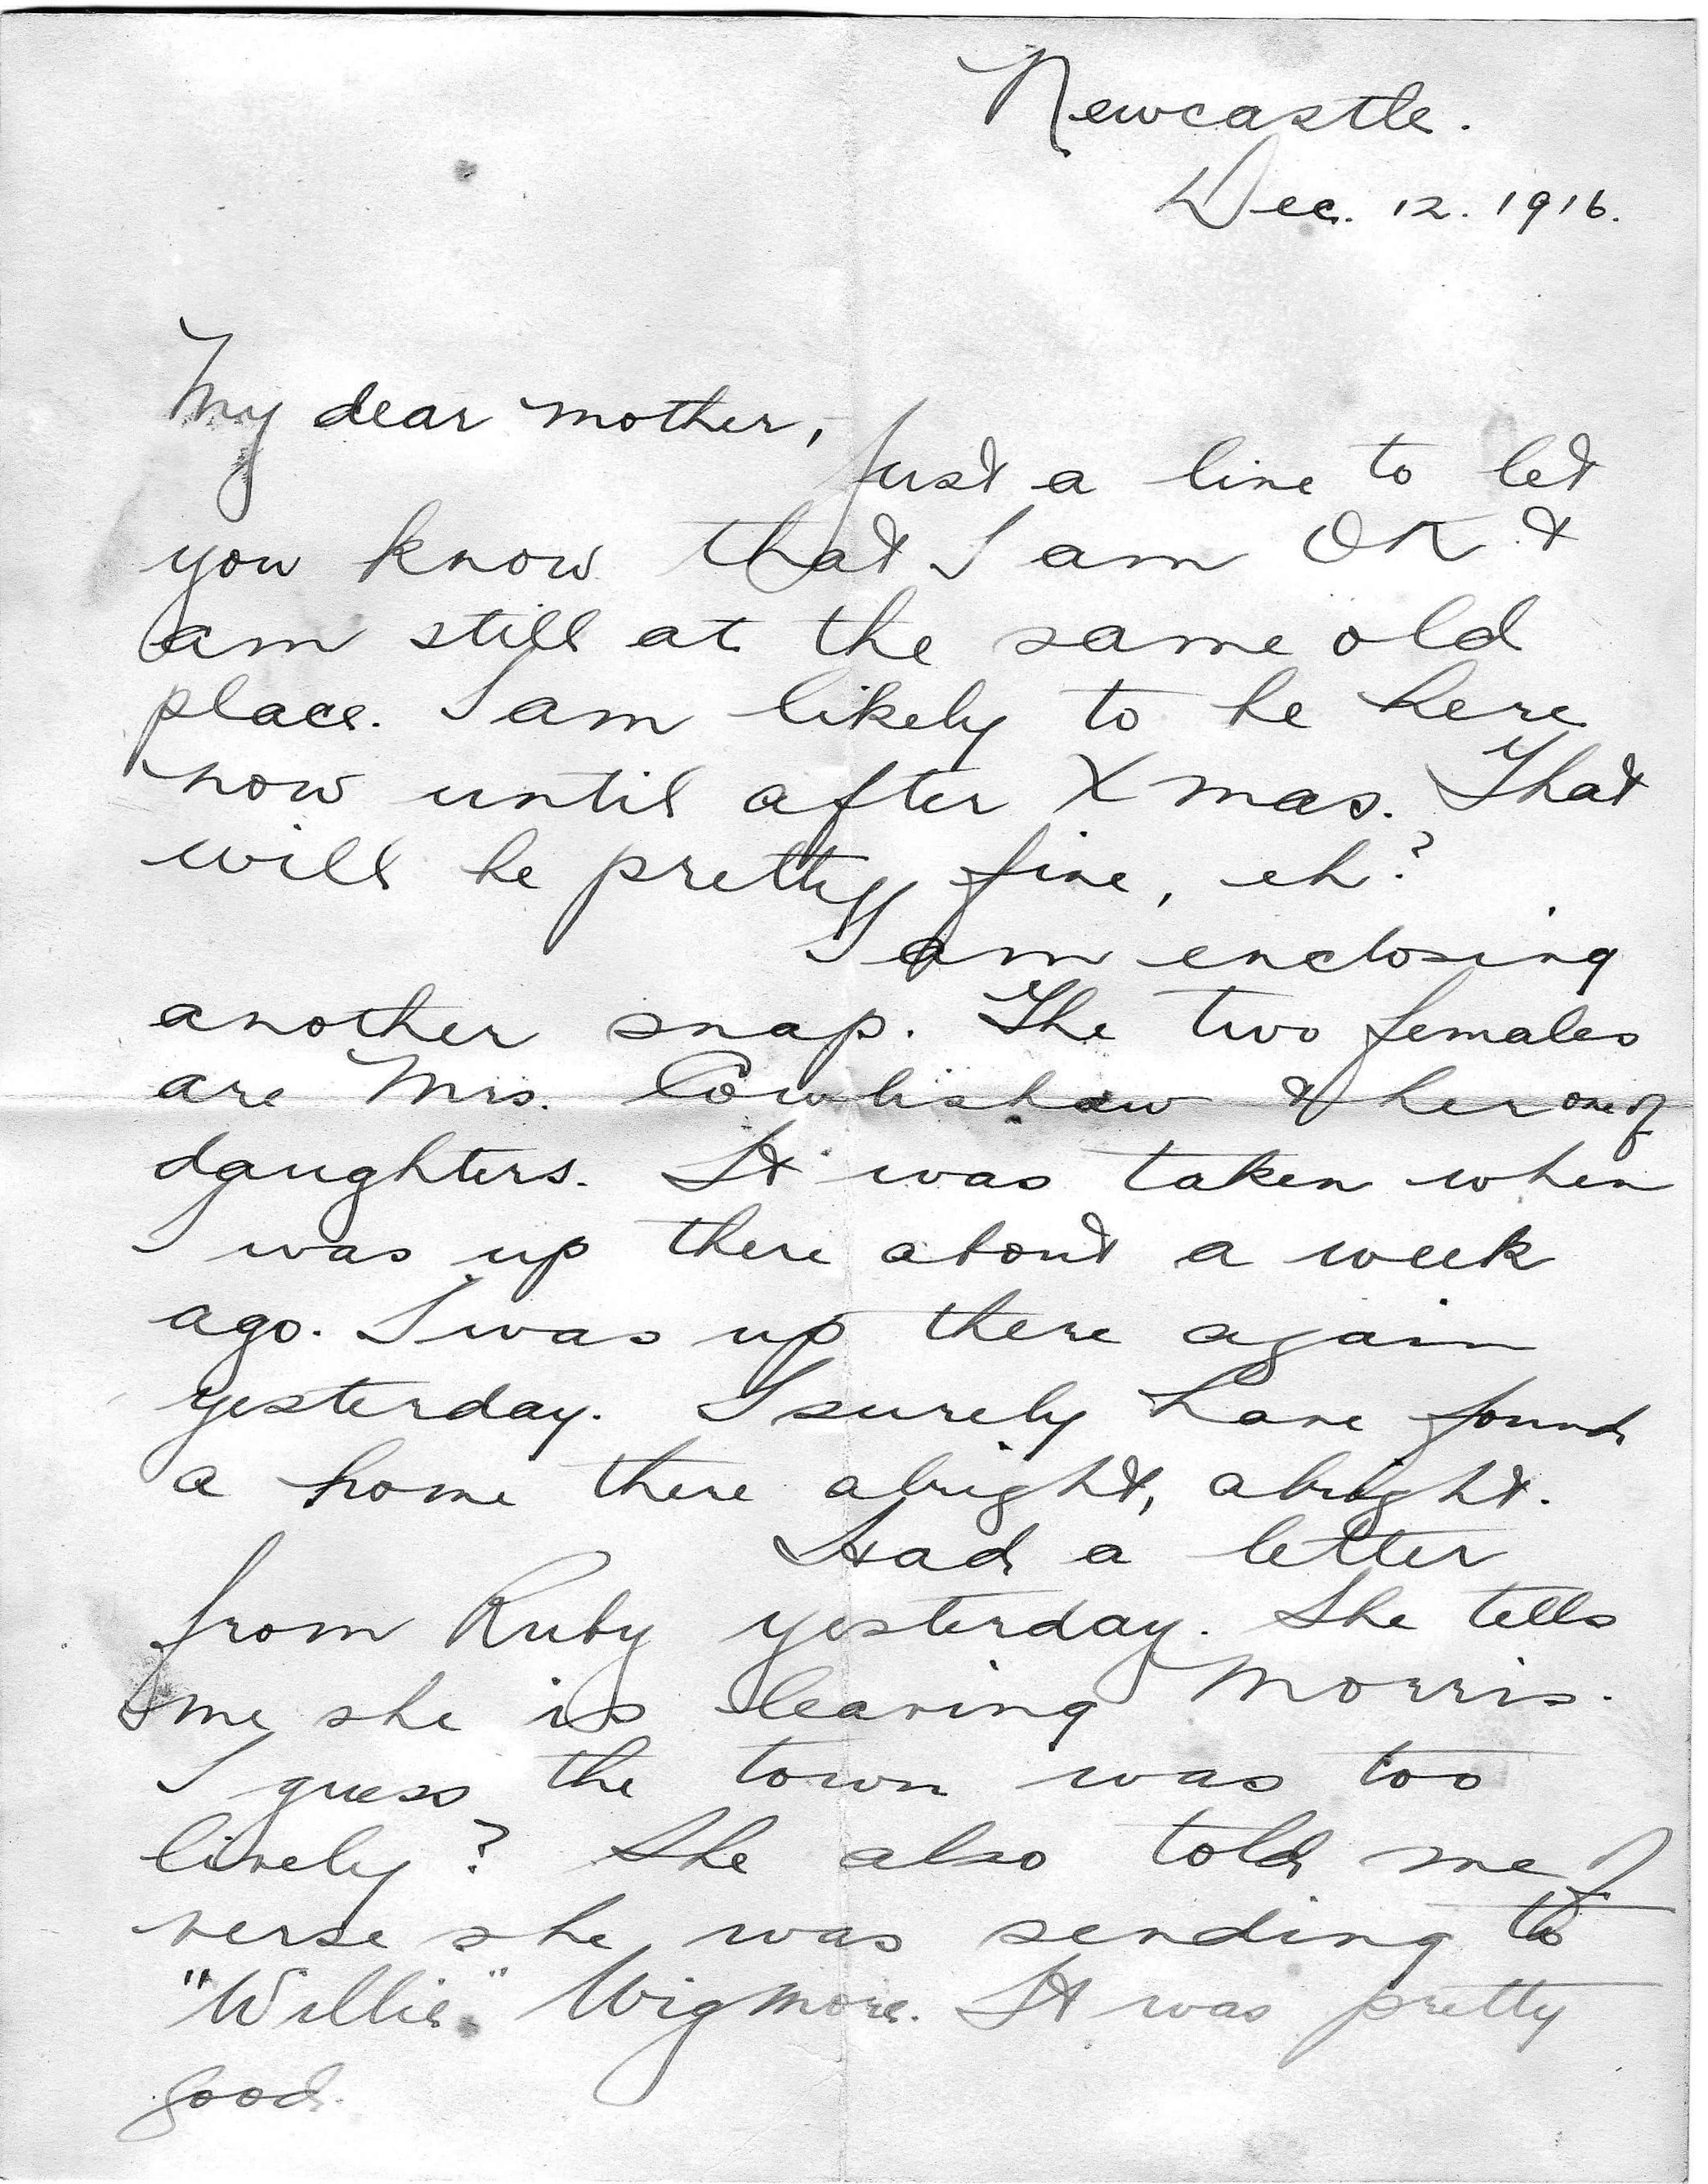 Newcastle.
Dec. 12. 1916.
My dear mother,
Just a line to let
you know that I am OK &
am still at the same old
place. I am likely to be here
now until after Xmas. That
will be pretty fine, eh?
I am enclosing
another snap. The two females
are Mrs. Cowlishaw & her one of
daughters. It was taken when
I was up there about a week
ago. I was up there again
yesterday. I surely have found
a home there alright, alright.
Had a letter
from Ruby yesterday. She tells
me she is leaving Morris.
I guess the town was too
lively? She also told me
verse she was sending to
"Willie" Wigmore. It was pretty
good.